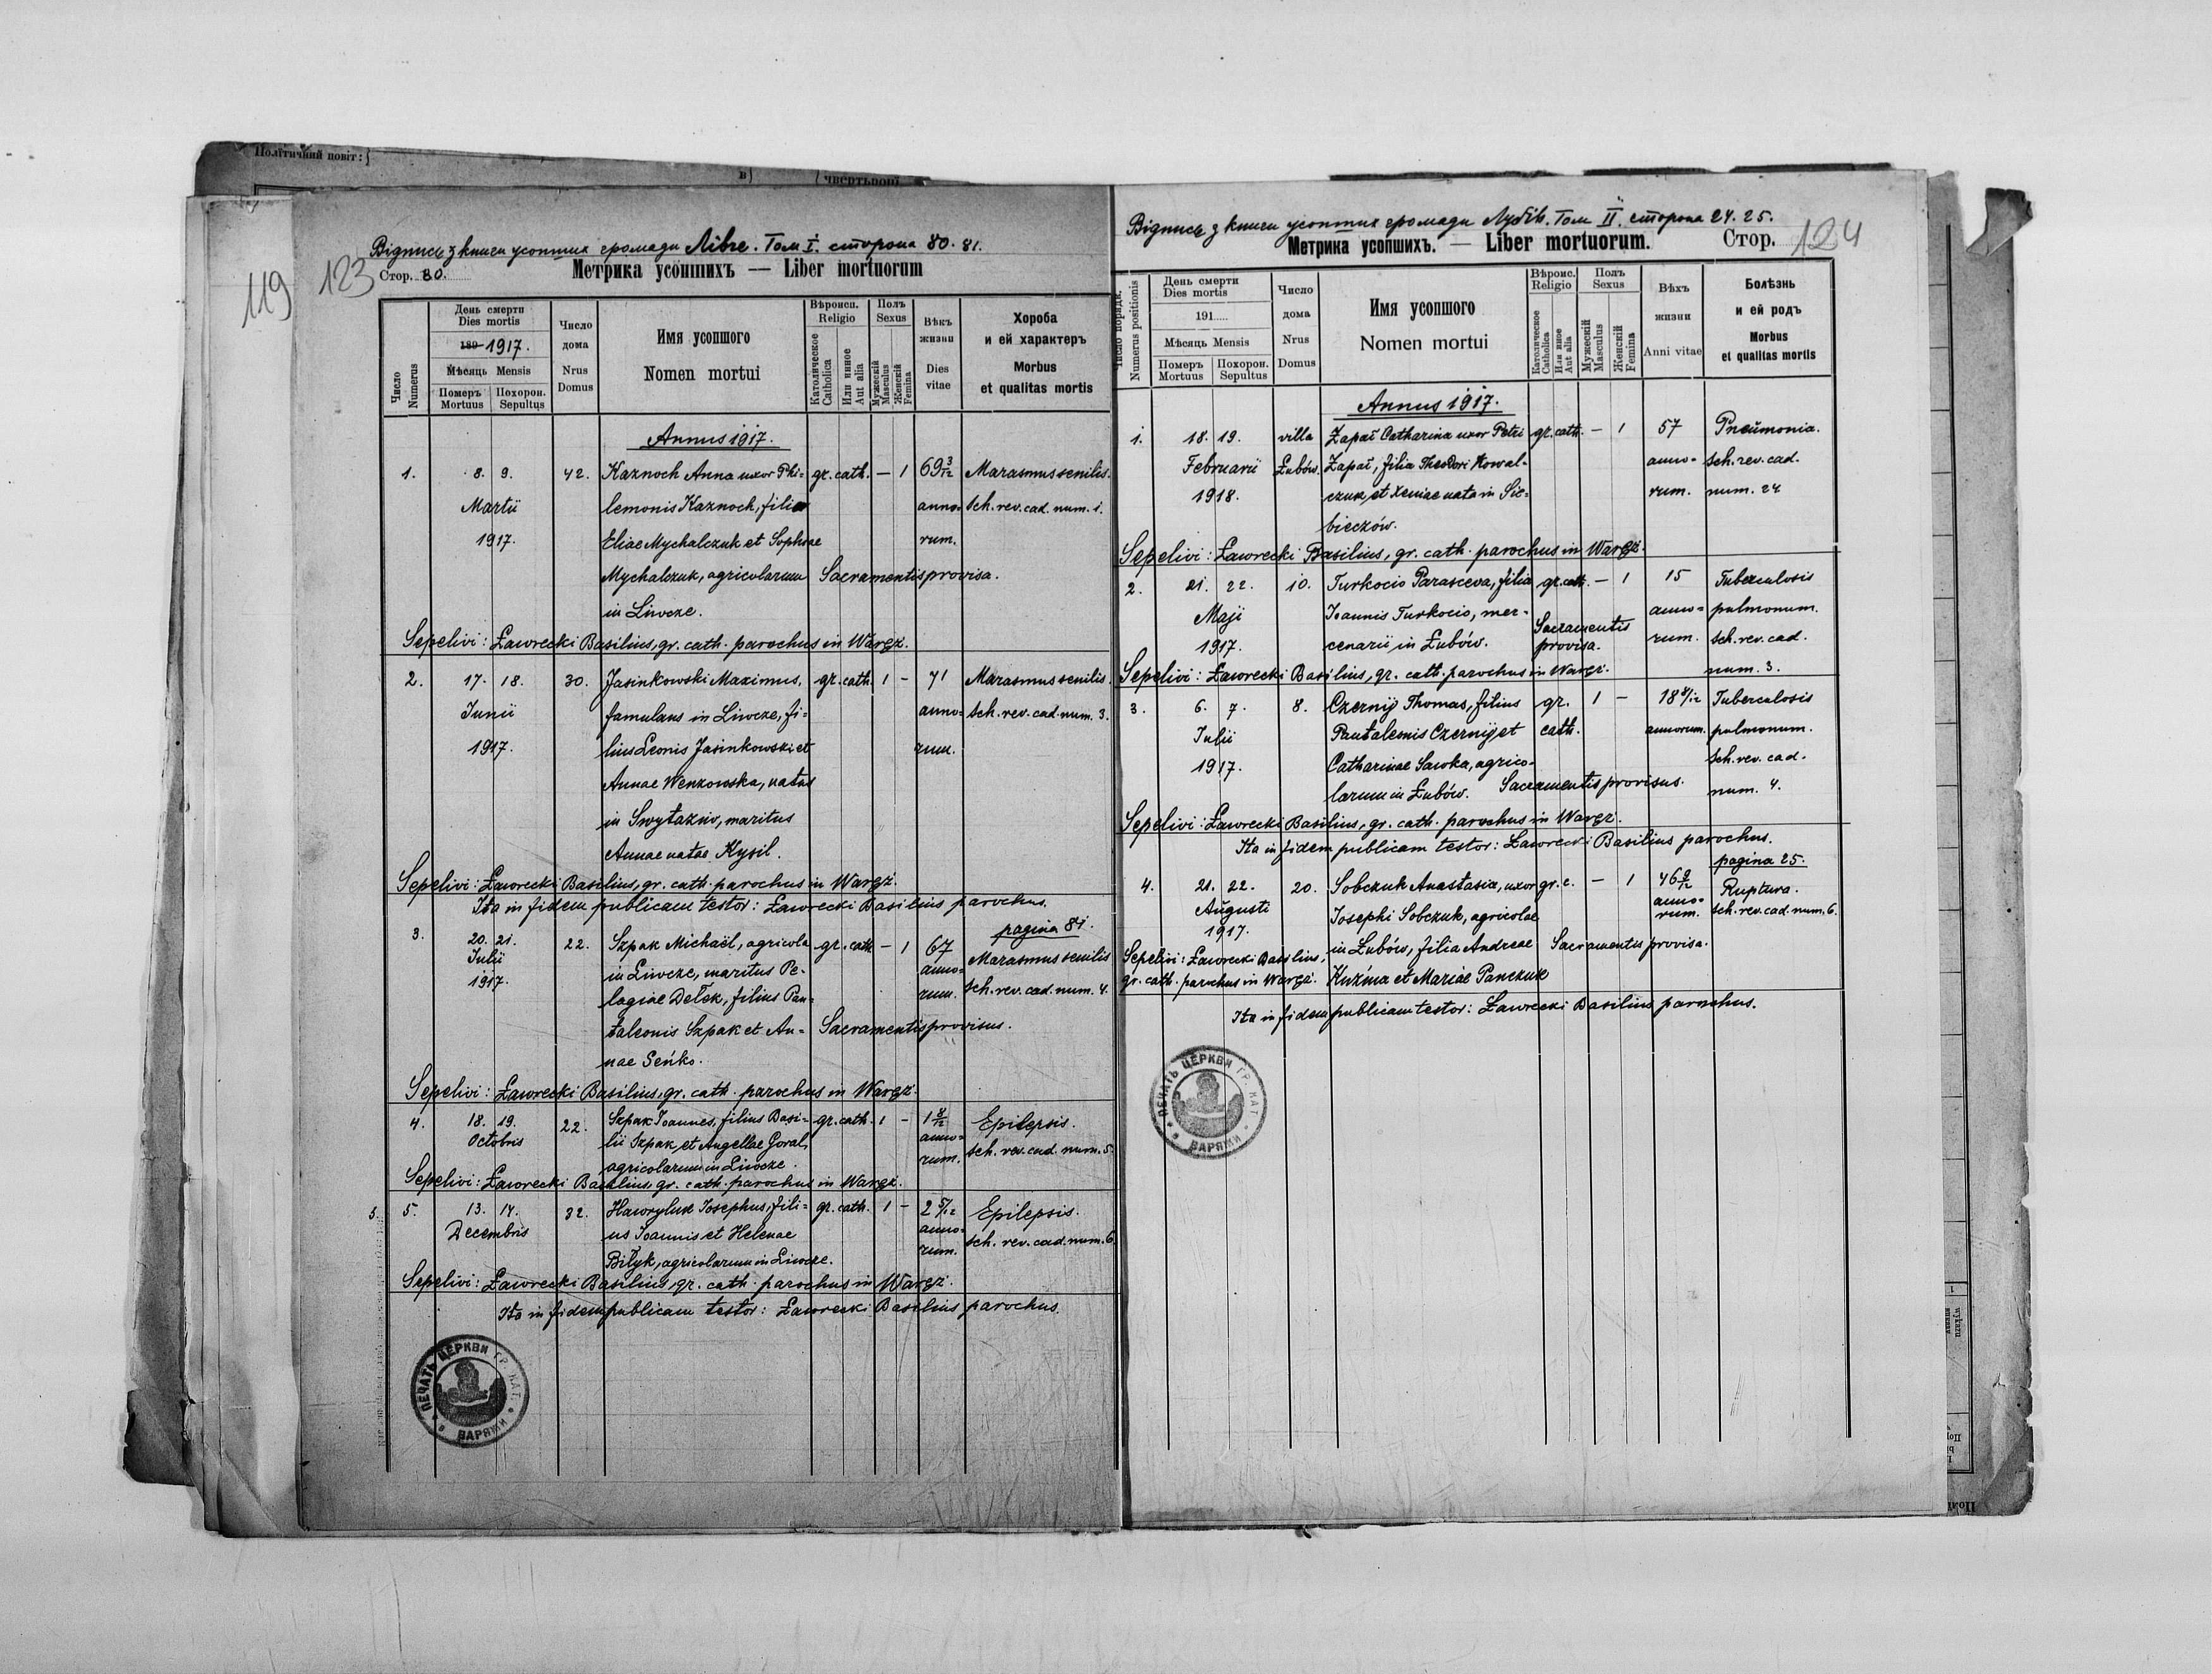 Політичний повіт:
в) (чвертьрочі
119
123
Відпись з книги усопших громади Лівче. Том I. сторона 80. 81.
Стор. 80.
Метрика усопшихъ — Liber mortuorum
Число Numerus
День смерти
Dies mortis
189 1917.
Мѣсяць Mensis
Померъ Mortuus
Похорон. Sepultus
Число дома
Nrus Domus
Имя усопшого
Nomen mortui
Вѣроисп. Religio
Католическое Catholica
Или инное Aut alia
Полъ Sexus
Мужескій Masculus
Женскій Femina
Вѣкъ жизни
Dies vitae
Хороба
и ей характеръ
Morbus
et qualitas mortis
Annus 1917.
1. 8. 9. 42. Kaznoch Anna uxor Phi= gr. cath. — 1 69 3/12 Marasmus senilis.
Martii lemonis Kaznoch, filia anno= sch. rev. cad. num. 1.
1917. Eliae Mychalczuk et Sophiae rum.
Mychalczuk, agricolarum Sacramentis provisa.
in Liwcze.
Sepelivi: Ławrecki Basilius, gr. cath. parochus in Waręż.
2. 17. 18. 30. Jasinkowski Maximus, gr. cath. 1 — 71 Marasmus senilis.
Junii famulans in Liwcze, fi= anno= sch. rev. cad. num. 3.
1917. lius Leonis Jasinkowski et rum.
Annae Wenzowska, natus
in Swytaziw, maritus
Annae natae Kysil.
Sepelivi: Ławrecki Basilius, gr. cath. parochus in Waręż.
Ita in fidem publicam testor: Ławrecki Basilius parochus.
pagina 81.
3. 20. 21. 22. Szpak Michaël, agricola gr. cath. — 1 67 Marasmus senilis
Julii in Liwcze, maritus Pe= anno= sch. rev. cad. num. 4.
1917. lagiae Dełek, filius Pan= rum.
taleonis Szpak et An= Sacramentis provisus.
nae Seńko.
Sepelivi: Ławrecki Basilius, gr. cath. parochus in Waręż.
4. 18. 19. 22. Szpak Joannes, filius Basi= gr. cath. 1 — 1 8/12 Epilepsis.
Octobris lii Szpak et Angellae Goral, anno= sch. rev. cad. num. 5.
agricolarum in Liwcze. rum.
Sepelivi: Ławrecki Basilius, gr. cath. parochus in Waręż.
5. 5. 13. 14. 32. Hawryluk Josephus, fili= gr. cath. 1 — 2 5/12 Epilepsis.
Decembris us Joannis et Helenae anno= sch. rev. cad. num. 6.
Biłyk, agricolarum in Liwcze. rum.
Sepelivi: Ławrecki Basilius, gr. cath. parochus in Waręż.
Ita in fidem publicam testor: Ławrecki Basilius parochus.
ПЕЧАТЬ ЦЕРКВИ ГР. КАТ. в ВАРЯЖИ
Відпись з книги усопших громади Лубів. Том II. сторона 24. 25.
Метрика усопшихъ. — Liber mortuorum.
Стор. 124
Число порядк.
Numerus positionis
День смерти
Dies mortis
191
Мѣсяць Mensis
Померъ Mortuus
Похорон. Sepultus
Число дома
Nrus Domus
Имя усопшого
Nomen mortui
Вѣроис. Religio
Католическое Catholica
Или иное Aut alia
Полъ Sexus
Мужескій Masculus
Женскій Femina
Вѣхъ жизни
Anni vitae
Болѣзнь
и ей родъ
Morbus
et qualitas mortis
Annus 1917.
1. 18. 19. villa Zapał Catharina uxor Petri gr. cath. — 1 57 Pneŭmonia.
Februarii Łubów. Zapał, filia Theodori Kowal- anno= sch. rev. cad.
1918. czuk, et Xeniae nata in Sie= rum. num. 24
bieczów.
Sepelivi: Ławrecki Basilius, gr. cath. parochus in Waręż.
2. 21. 22. 10. Turkocio Parasceva, filia gr. cath. — 1 15 Tuberculosis
Maji Joannis Turkocio, mer- anno= pulmonum.
1917. cenarii in Łubów. Sacramentis provisa. rum. sch. rev. cad.
num. 3.
Sepelivi: Ławrecki Basilius, gr. cath. parochus in Waręż.
3. 6. 7. 8. Czernij Thomas, filius gr. 1 — 18 4/12 Tuberculosis
Julii Pantalemis Czernij et cath. annorum. pulmonum.
1917. Catharinae Sawka, agrico- sch. rev. cad.
larum in Łubów. Sacramentis provisus. num. 4.
Sepelivi: Ławrecki Basilius, gr. cath. parochus in Waręż.
Ita in fidem publicam testor: Ławrecki Basilius parochus.
pagina 25.
4. 21. 22. 20. Sobczuk Anastasia, uxor gr. c. — 1 46 9/12 Ruptura.
Augŭsti Josephi Sobczuk, agricolae anno= rum. sch. rev. cad. num. 6.
1917. in Łubów, filia Andreae Sacramentis provisa.
Kuźma et Mariae Panczuk
Sepelivi: Ławrecki Basilius,
gr. cath. parochus in Waręż.
Ita in fidem publicam testor: Ławrecki Basilius parochus.
ПЕЧАТЬ ЦЕРКВИ ГР. КАТ. в ВАРЯЖИ
wykazu